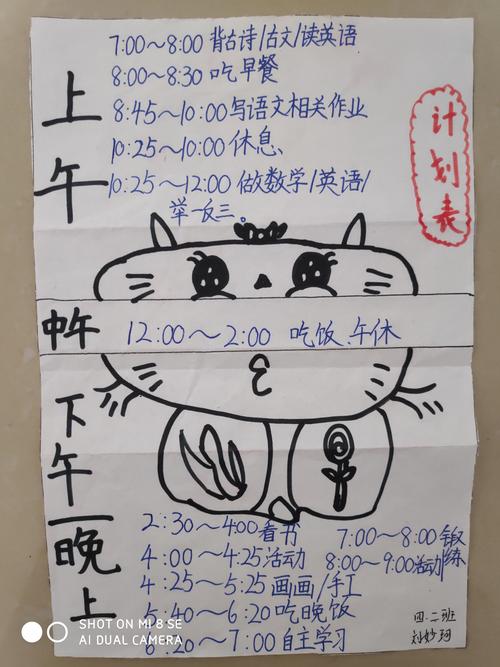 7:00～8:00 背古诗/古文/读英语
8:00～8:30 吃早餐
8:45～10:00写语文相关作业
10:25～10:00 休息、
10:25～12:00 做数学/英语/
举一反三。
上午
计划表
中午
12:00～2:00 吃饭、午休
下午
晚上
2:30～4:00看书
4:00～4:25活动
4:25～5:25画画/手工
5:40～6:20吃晚饭
6:20～7:00自主学习
7:00～8:00 锻炼
8:00～9:00活动
四.二班
SHOT ON MI 8 SE
AI DUAL CAMERA